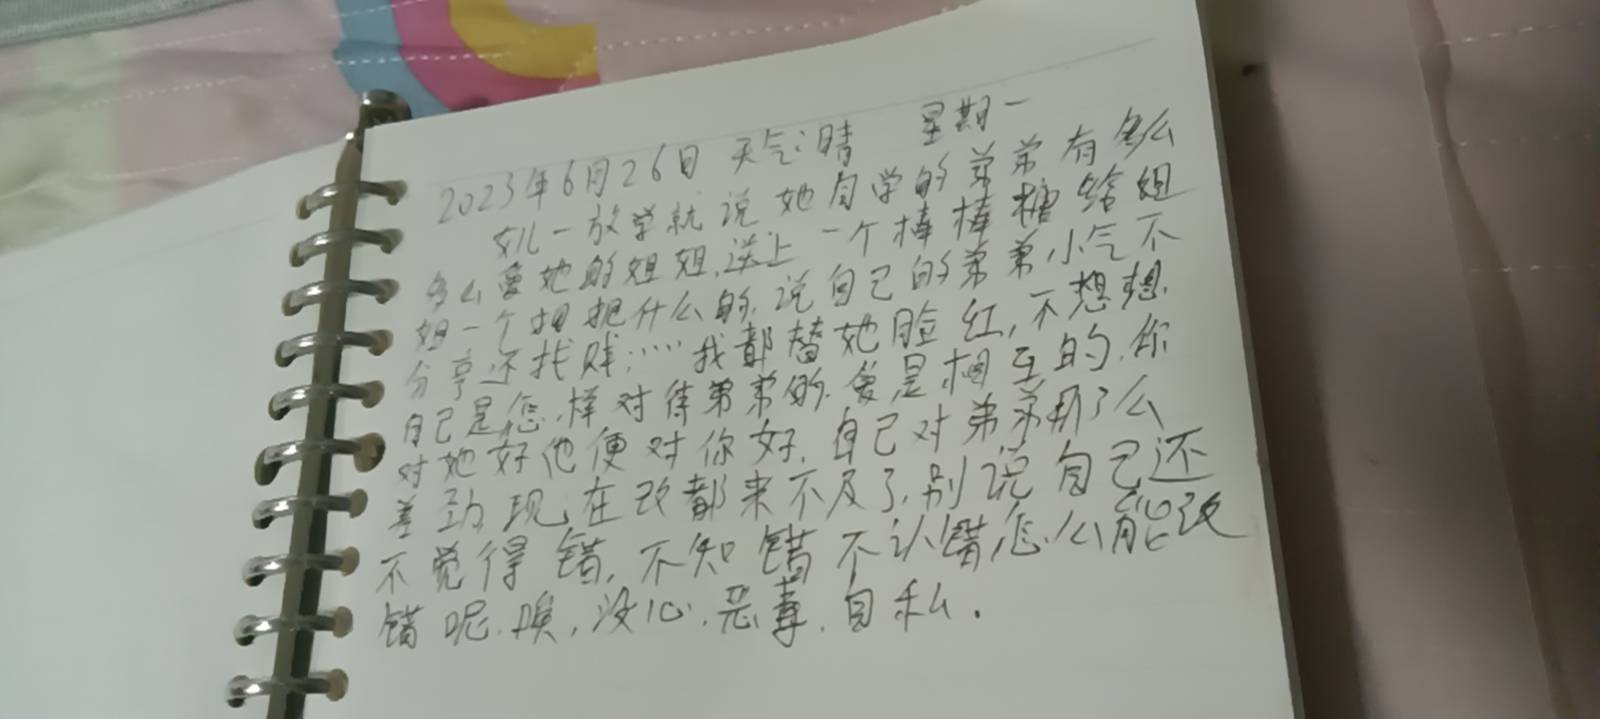 2023年6月26日 天气:晴 星期一
一放学就说她同学的弟弟有多么
多么爱她的姐姐,送上一个棒棒糖给姐
姐一个拥抱什么的,说自己的弟弟小气不
分享还找贱:……我都替她脸红,不想想
自己是怎样对待弟弟的.爱是相互的.你
对她好他便对你好.自己对弟弟那了么
差劲,现在改都来不及了,别说自己还
不觉得错,不知错不认错怎么能改
错呢.唉,没心.恶毒.自私.